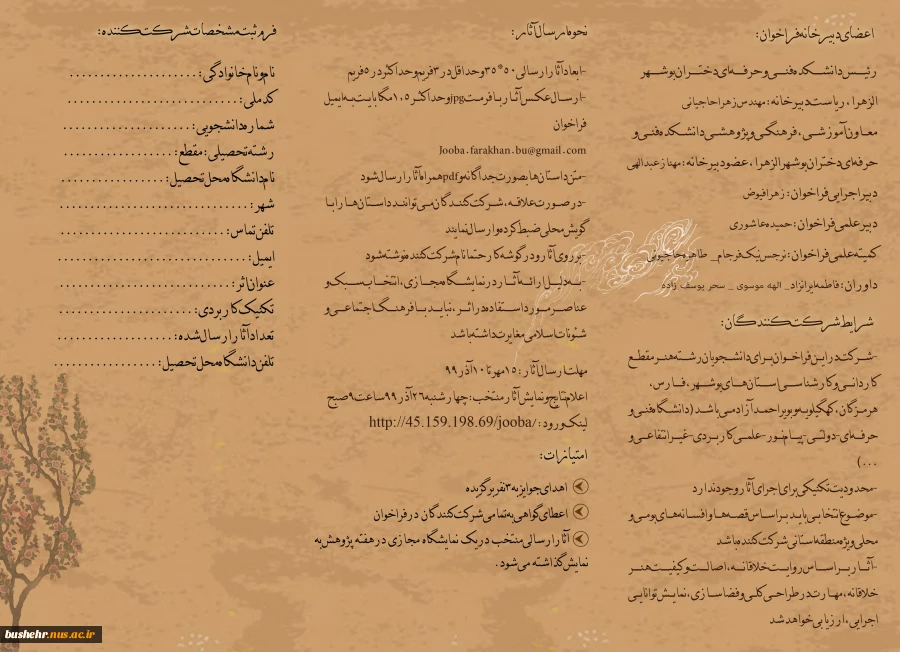 اعضای دبیرخانه فراخوان:
رئیس دانشکده فنی و حرفه ای دختران بوشهر
الزهرا، ریاست دبیرخانه: مهندس زهرا حاجیانی
معاون آموزشی، فرهنگی و پژوهشی دانشکده فنی و
حرفه ای دختران بوشهر الزهرا، عضو دبیرخانه: مهناز عبدالهی
دبیر اجرایی فراخوان: زهرا فیوض
دبیر علمی فراخوان: حمیده عاشوری
کمیته علمی فراخوان: نرجس نیک فرجام_ طاهره حاجیونی
داوران: فاطمه ایرانزاد_ الهه موسوی _ سحر یوسف زاده
شرایط شرکت کنندگان:
-شرکت در این فراخوان برای دانشجویان رشته هنر مقطع
کاردانی و کارشناسی استان های بوشهر، فارس،
هرمزگان، کهگیلویه و بویراحمد آزاد می باشد (دانشگاه فنی و
حرفه ای-دولتی-پیام نور-علمی کاربردی-غیرانتفاعی و
...)
-محدودیت تکنیکی برای اجرای آثار وجود ندارد
-موضوع انتخابی باید بر اساس قصه ها و افسانه های بومی و
محلی ویژه منطقه استانی شرکت کننده باشد
-آثار بر اساس روایت خلاقانه، اصالت و کیفیت هنر
خلاقانه، مهارت در طراحی کلی و فضاسازی، نمایش توانایی
اجرایی، ارزیابی خواهد شد
نحوه ارسال آثار:
-ابعاد آثار ارسالی ۵۰*۳۵ و حداقل در ۳ فریم و حداکثر در ۵ فریم
-ارسال عکس آثار با فرمت jpg و حداکثر ۱.۵ مگابایت به ایمیل
فراخوان
Jooba.farakhan.bu@gmail.com
-متن داستان ها بصورت جداگانه و pdf همراه آثار ارسال شود
-در صورت علاقه، شرکت کنندگان می توانند داستان ها را با
گویش محلی ضبط کرده و ارسال نمایند
-بر روی آثار و در گوشه کار حتما نام شرکت کننده نوشته شود
-به دلیل ارائه آثار در نمایشگاه مجازی، انتخاب سبک و
عناصر مورد استفاده در اثر، نباید با فرهنگ اجتماعی و
شئونات اسلامی مغایرت داشته باشد
مهلت ارسال آثار: ۱۵ مهر تا ۱۰ آذر ۹۹
اعلام نتایج و نمایش آثار منتخب: چهارشنبه ۲۶ آذر ۹۹ ساعت ۹ صبح
لینک ورود: http://45.159.198.69/jooba/
امتیازات:
اهدای جوایز به ۳ نفر برگزیده
اعطای گواهی به تمامی شرکت کنندگان در فراخوان
آثار ارسالی منتخب در یک نمایشگاه مجازی در هفته پژوهش به
نمایش گذاشته می شود.
فرم ثبت مشخصات شرکت کننده:
نام و نام خانوادگی: .....................
کد ملی: ............................
شماره دانشجویی: .....................
رشته تحصیلی: مقطع: ..................
نام دانشگاه محل تحصیل: ..................
شهر: ...............................
تلفن تماس: ...........................
ایمیل: ...............................
عنوان اثر: ............................
تکنیک کاربردی: ......................
تعداد آثار ارسال شده: ...................
تلفن دانشگاه محل تحصیل: .................
bushehr.nus.ac.ir